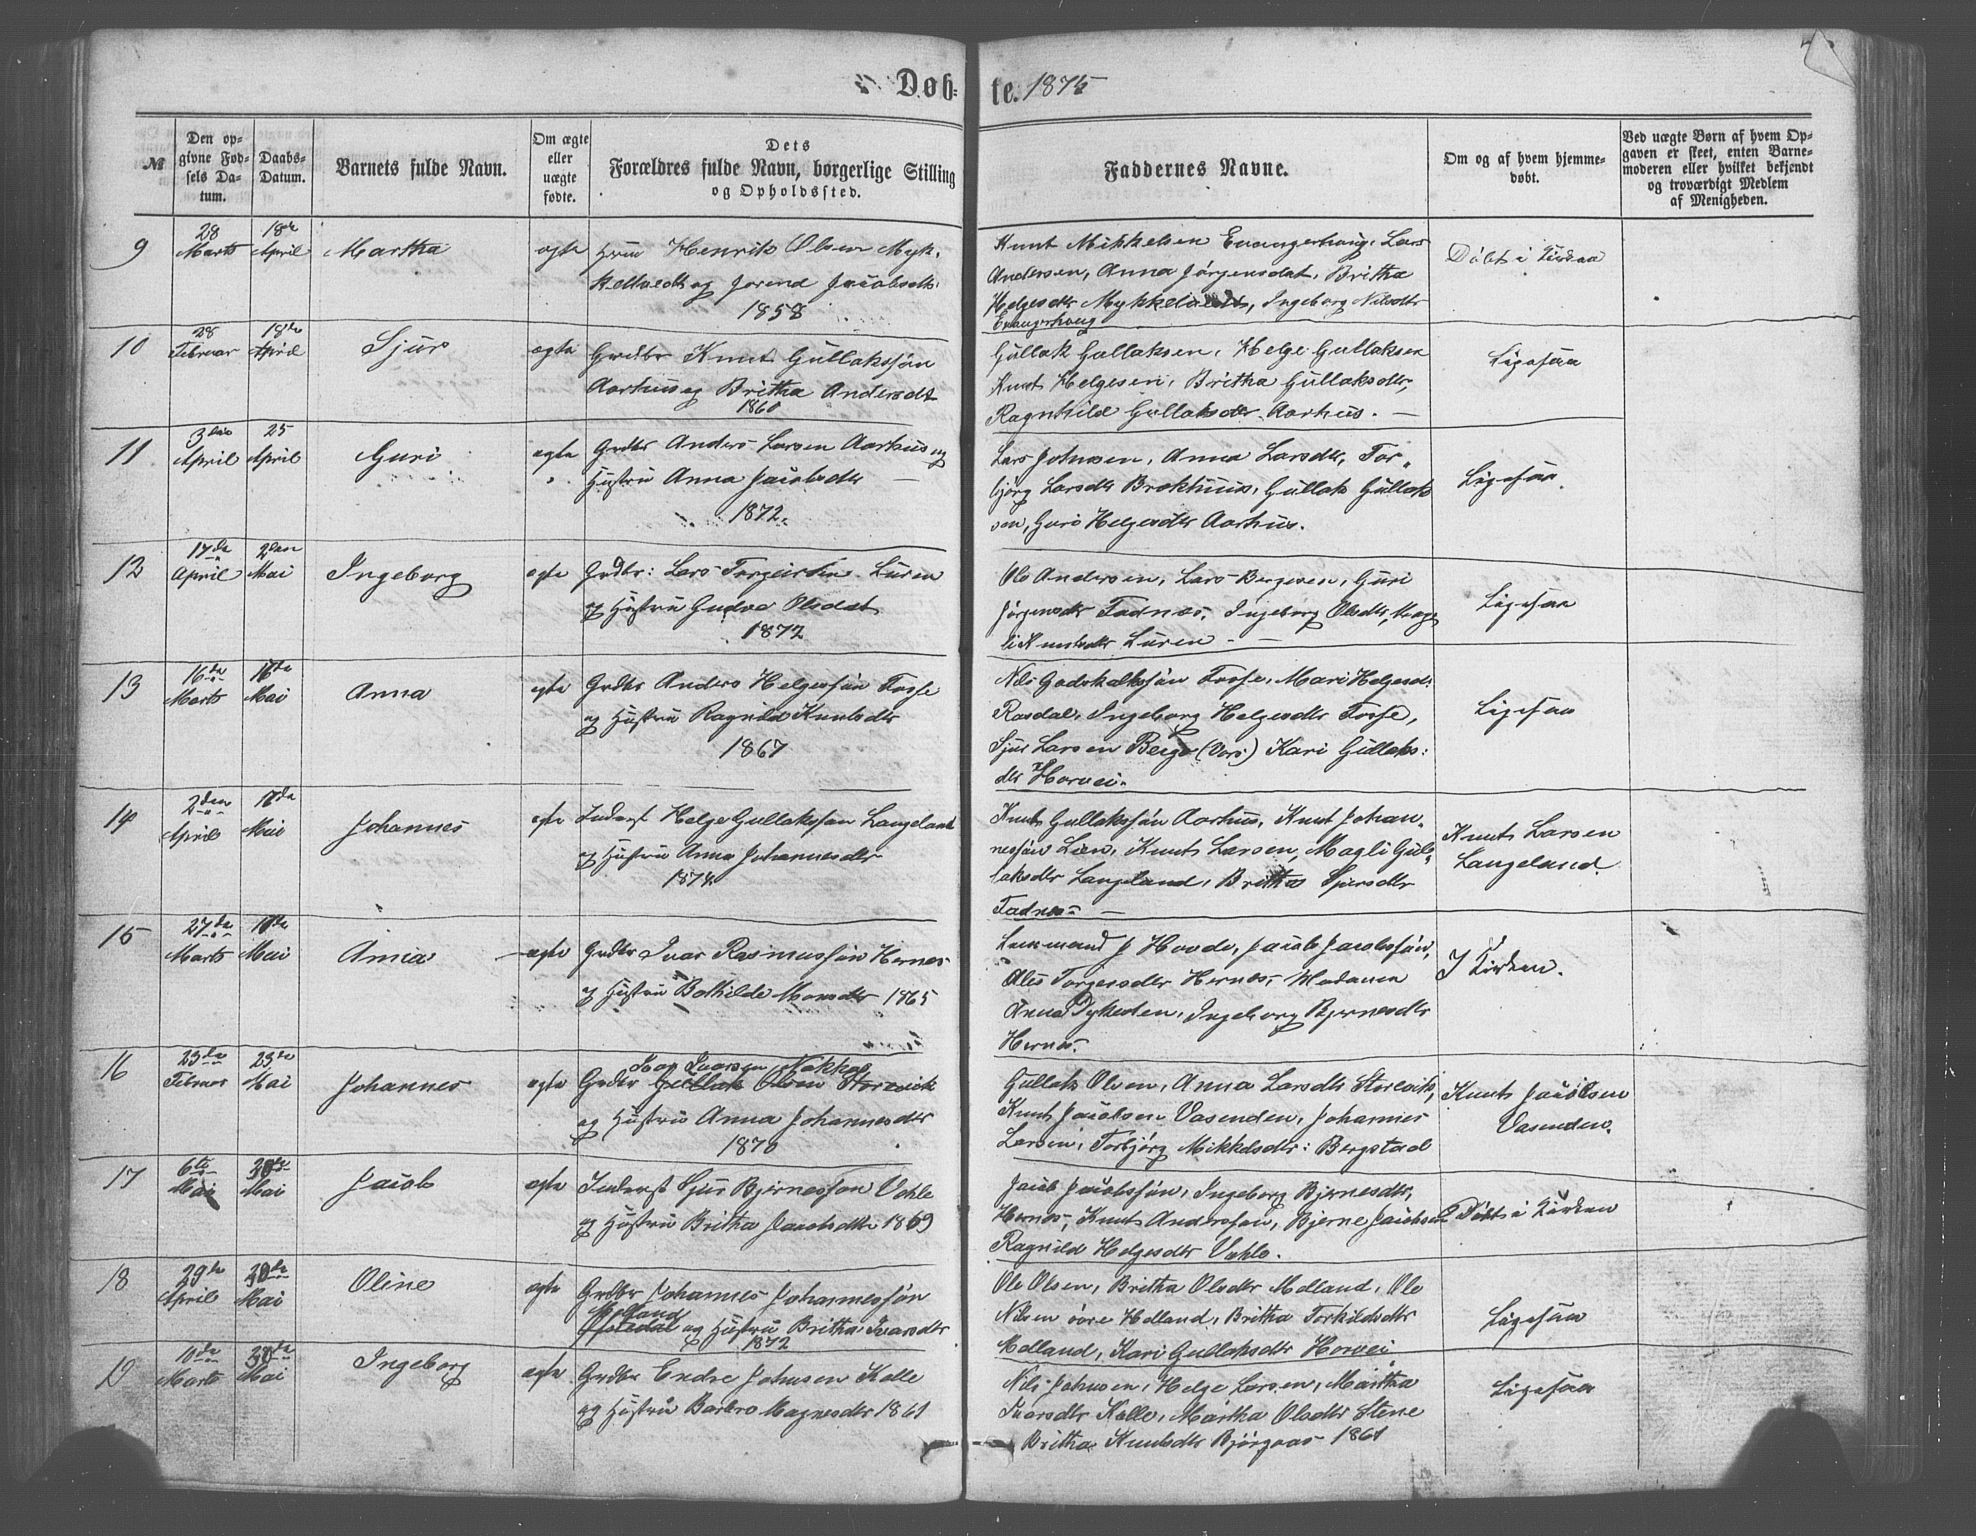 Døb-
te. 1875
№
Den op-
givne Fød-
sels Da-
tum.
Daabs-
Datum.
Barnets fulde Navn.
Om ægte
eller
uægte
fødte.
Dets
Forældres fulde Navn, borgerlige Stilling
og Opholdssted.
Faddernes Navne.
Om og af hvem hjemme-
døbt.
Ved uægte Børn af hvem Op-
gaven er skeet, enten Barne-
moderen eller hvilket bekjendt
og troværdigt Medlem
af Menigheden.
9
28
Marts
18de
April
Martha
egte
Henrik Olsen Myk-
keltvedt og Jorend Jacobsdtr
1858
Knut Mikkelsen Evangerhaug, Lars
Andersen, Anna Jørgensdat, Britha
Helgesdtr Mykkeltvedt, Ingeborg Nilsdtr
Evangerhaug
Døbt i Kirken
10
28
Februar
18de
April
Sjur
egte
Grdbr Knut Gullakssøn
Aarhus og Britha Andersdt
1860
Gullak Gullaksen, Helge Gullaksen
Knut Helgesen, Britha Gullaksdtr,
Ragnhild Gullaksdtr Aarhus. —
Ligesaa
11
3die
April
25
April
Guri
egte
Grdbr Anders Larsen Aarhus og
Hustru Anna Jacobsdtr —
1872.
Lars Johnsen, Anna Larsdtr, Tor-
bjørg Larsdtr Brekhuus, Gullak Gullak
sen, Guro Helgesdtr Aarhus.
Ligesaa.
12
17de
April
2den
Mai
Ingeborg
egte
Grdbr: Lars Torgeirsen Liren
og Hustru Gudve Olsdat
1872
Ole Andersen, Lars Bergesen, Guri
Jørgensdtr Fadnes, Ingeborg Olsdtr, Mag
li Knutsdtr Liren - —
Ligesaa
13
16de
Marts
16de
Mai
Anna
egte
Grdbr Anders Helgessøn Fosse
og Hustru Ragnilda Knutsdtr
1867
Nils Godskalkssøn Fosse, Mari Helgesd:
Rasdal, Ingeborg Helgesdtr Fosse,
Sjur Larsen Berge (Vors) Kari Gullaks:
dtr Horvei.
Ligesaa
14
2den
April
17de
Mai
Johannes
egte
Inderst Helge Gullakssøn Langeland
og Hustru Anna Johannesdtr
1874.
Knut Gullakssøn Aarhus, Knut Johan-
nessøn Lien, Knut Larsen, Magli Gul-
laksdtr Langeland, Britha Sjursdtr
Fadnes —
Knut Larsen
Langeland.
15
27de
Marts
17de
Mai
Anna
egte
Grdbr Ivar Rasmussøn Hernes
og Hustru Bothilde Monsdtr 1865
Lensmand J Hovde, Jacob Jacobssøn,
Ales Torgersdtr Hernes, Madame
Anna Dykesten, Ingeborg Bjørnesdtr
Hernes.
I Kirken.
16
23de
Februar
23de
Mai
Johannes
egte
Ivar Ivarsen Nakken
Grdbr Gullak Olsen Storevik
og Hustru Anna Johannesdtr
1870
Gullak Olsen, Anna Larsdtr Storevik,
Knut Jacobsen Vasenden, Johannes
Larsen, Torbjørg Mikkelsdtr: Bergstad
Knut Jacobsen
Vasenden.
17
6te
Mai
30te
Mai
Jacob
egte
Inderst Sjur Bjørnessøn Vohle
og Hustru Britha Jacobsdtr 1869
Jacob Jacobssøn, Ingeborg Bjørnesdtr,
Hernes, Knut Anderssøn, Bjerne Jacobsen
Ragnild Helgesdtr Vohle.
Døbt i Kirken
18
29de
April
30te
Mai
Oline
egte
Grdbr Johannes Johannessøn
Molland
og Hustru Britha Ivarsdtr
1872
Ole Olsen, Britha Olsdtr Molland, Ole
Nilsen øvre Helland, Britha Torkildsdtr
Molland, Kari Gullaksdtr Horvei
Ligesaa
19
10de
Marts
30te
Mai
Ingeborg
egte
Grdbr Endre Johnsen Kalle
og Hustru Barbro Magnesdtr 1861
Nils Johnsen, Helge Larsen, Martha
Ivarsdtr Kalle, Martha Olsdtr Stene
Britha Knutsdtr Bjørgaas 1861
Ligesaa